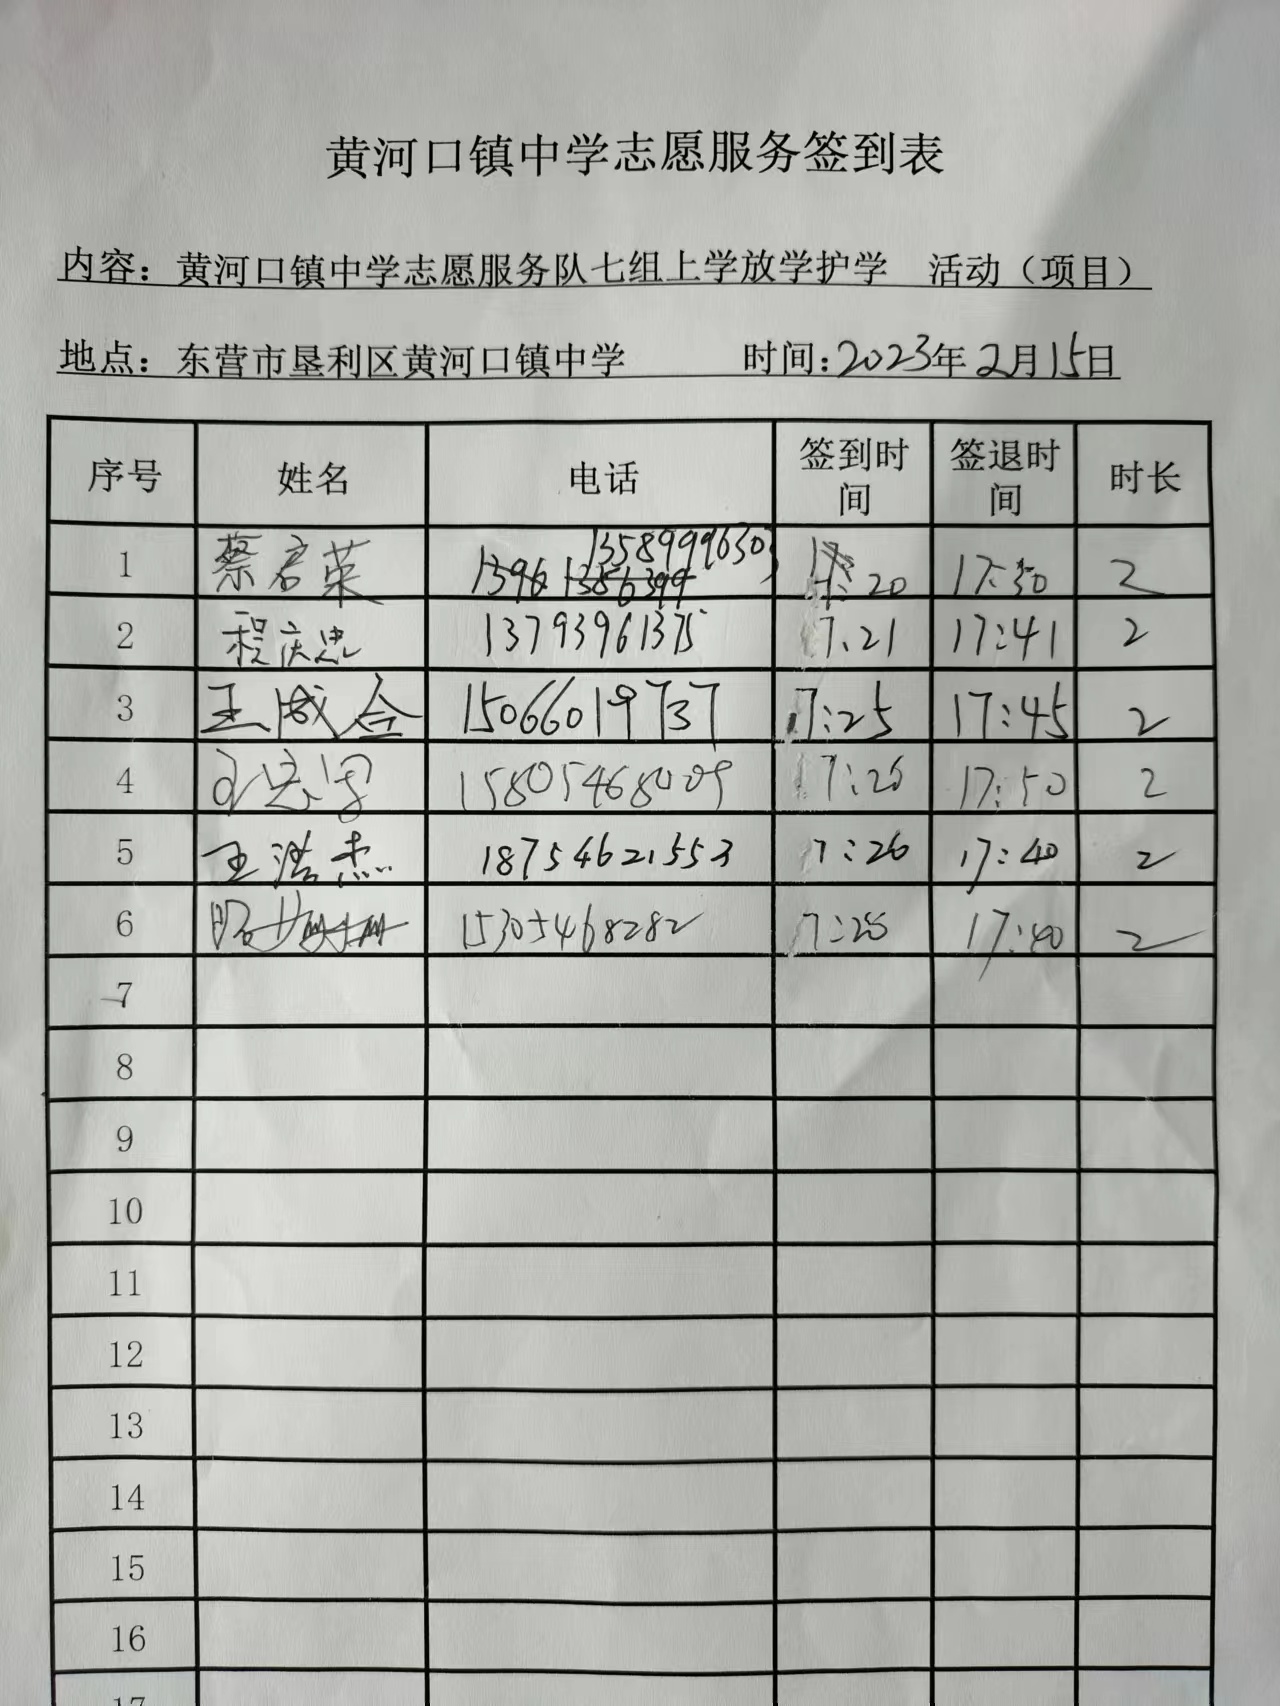 黄河口镇中学志愿服务签到表
内容：黄河口镇中学志愿服务队七组上学放学护学 活动（项目）
地点：东营市垦利区黄河口镇中学 时间：2023年2月15日
序号 姓名 电话 签到时间 签退时间 时长
1 蔡君荣 13589999630 :20 17:30 2
2 程庆忠 13793961375 17:21 17:41 2
3 王成合 15066019737 17:25 17:45 2
4 15805468009 17:26 17:50 2
5 王浩杰 18754621553 17:26 17:40 2
6 15305468282 17:26 17:40 2
7
8
9
10
11
12
13
14
15
16
17